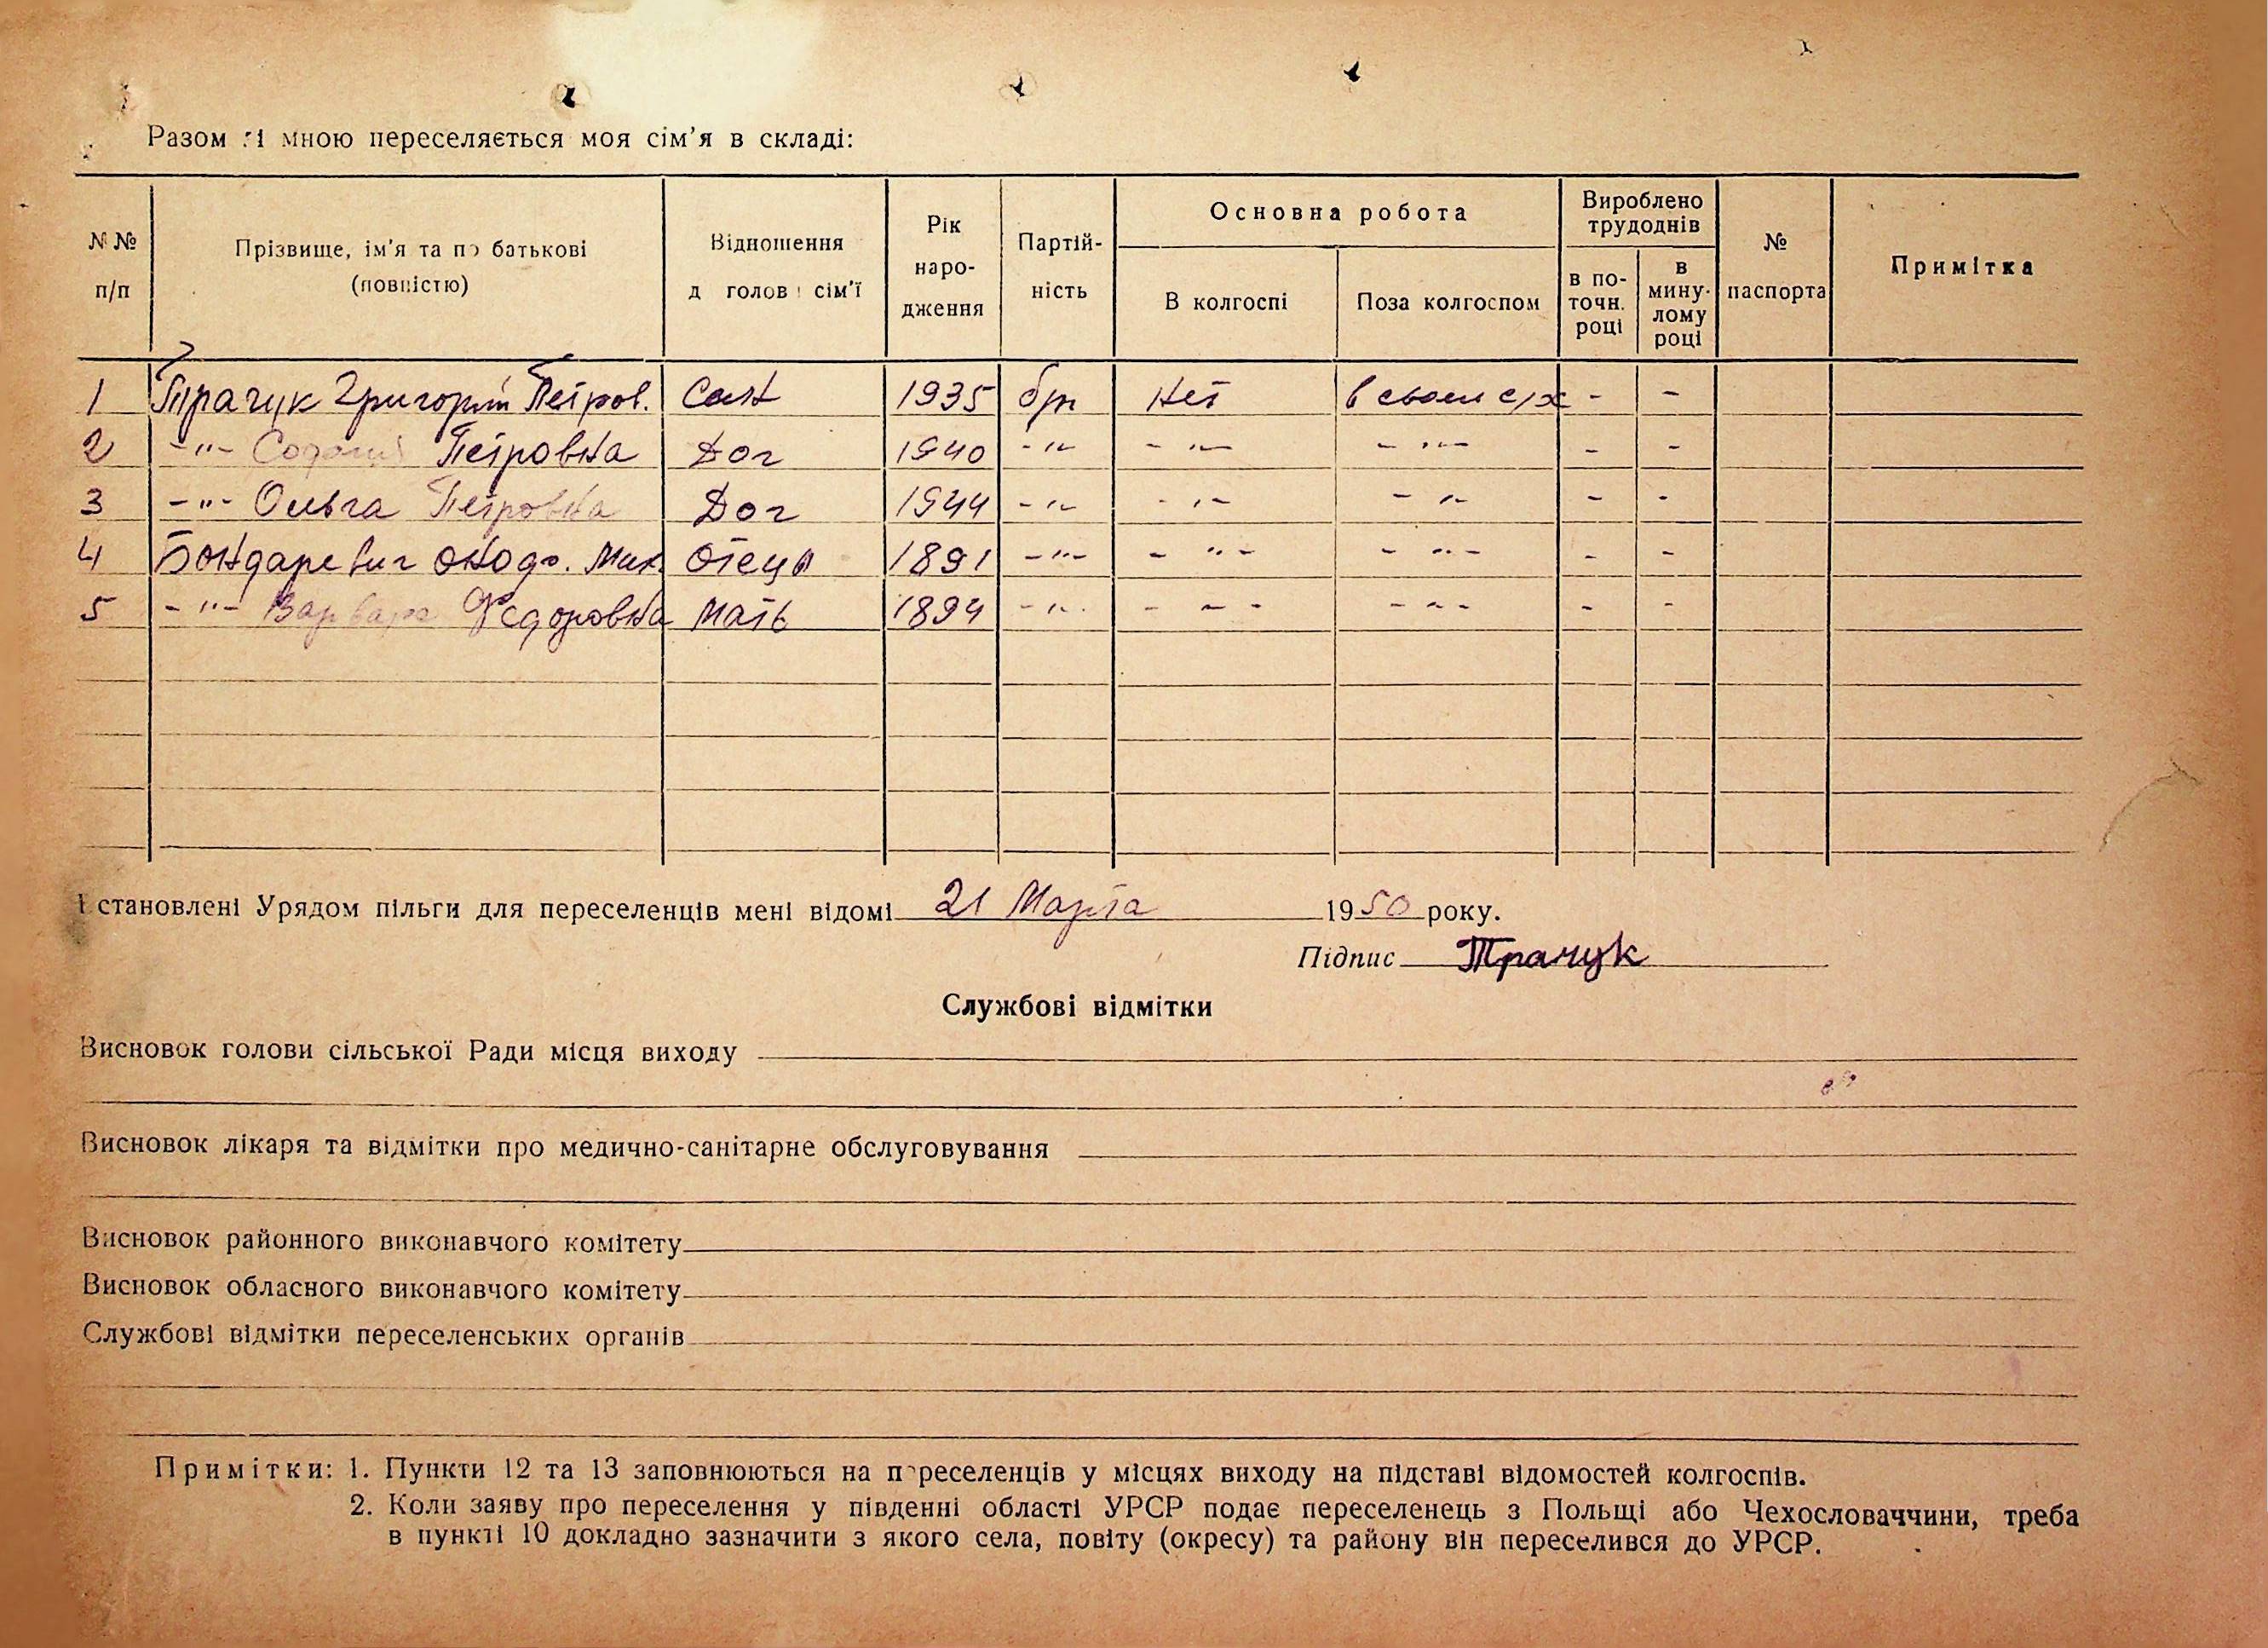 Разом зі мною переселяється моя сім'я в складі:
№№ п/п
Прізвище, ім'я та по батькові (повністю)
Відношення д голов сім'ї
Рік народження
Партійність
Основна робота
В колгоспі
Поза колгоспом
Вироблено трудоднів
в поточн. році
в минулому році
№ паспорта
Примітка
1 Трачук Григорий Петров. Сын 1935 бп Нет в своем с/х - -
2 -"- Петровна Доч 1940 -"- -"- -"- - -
3 -"- Ольга Петровна Доч 1944 -"- -"- -"- - -
4 Бондаревич Мих. Отець 1891 -"- -"- -"- - -
5 -"- Варвара Федоровна Мать 1894 -"- - - - - - - - -
Встановлені Урядом пільги для переселенців мені відомі 21 Марта 1950 року.
Підпис Трачук
Службові відмітки
Висновок голови сільської Ради місця виходу
Висновок лікаря та відмітки про медично-санітарне обслуговування
Висновок районного виконавчого комітету
Висновок обласного виконавчого комітету
Службові відмітки переселенських органів
Примітки: 1. Пункти 12 та 13 заповнюються на переселенців у місцях виходу на підставі відомостей колгоспів.
2. Коли заяву про переселення у південні області УРСР подає переселенець з Польщі або Чехословаччини, треба
в пункті 10 докладно зазначити з якого села, повіту (окресу) та району він переселився до УРСР.